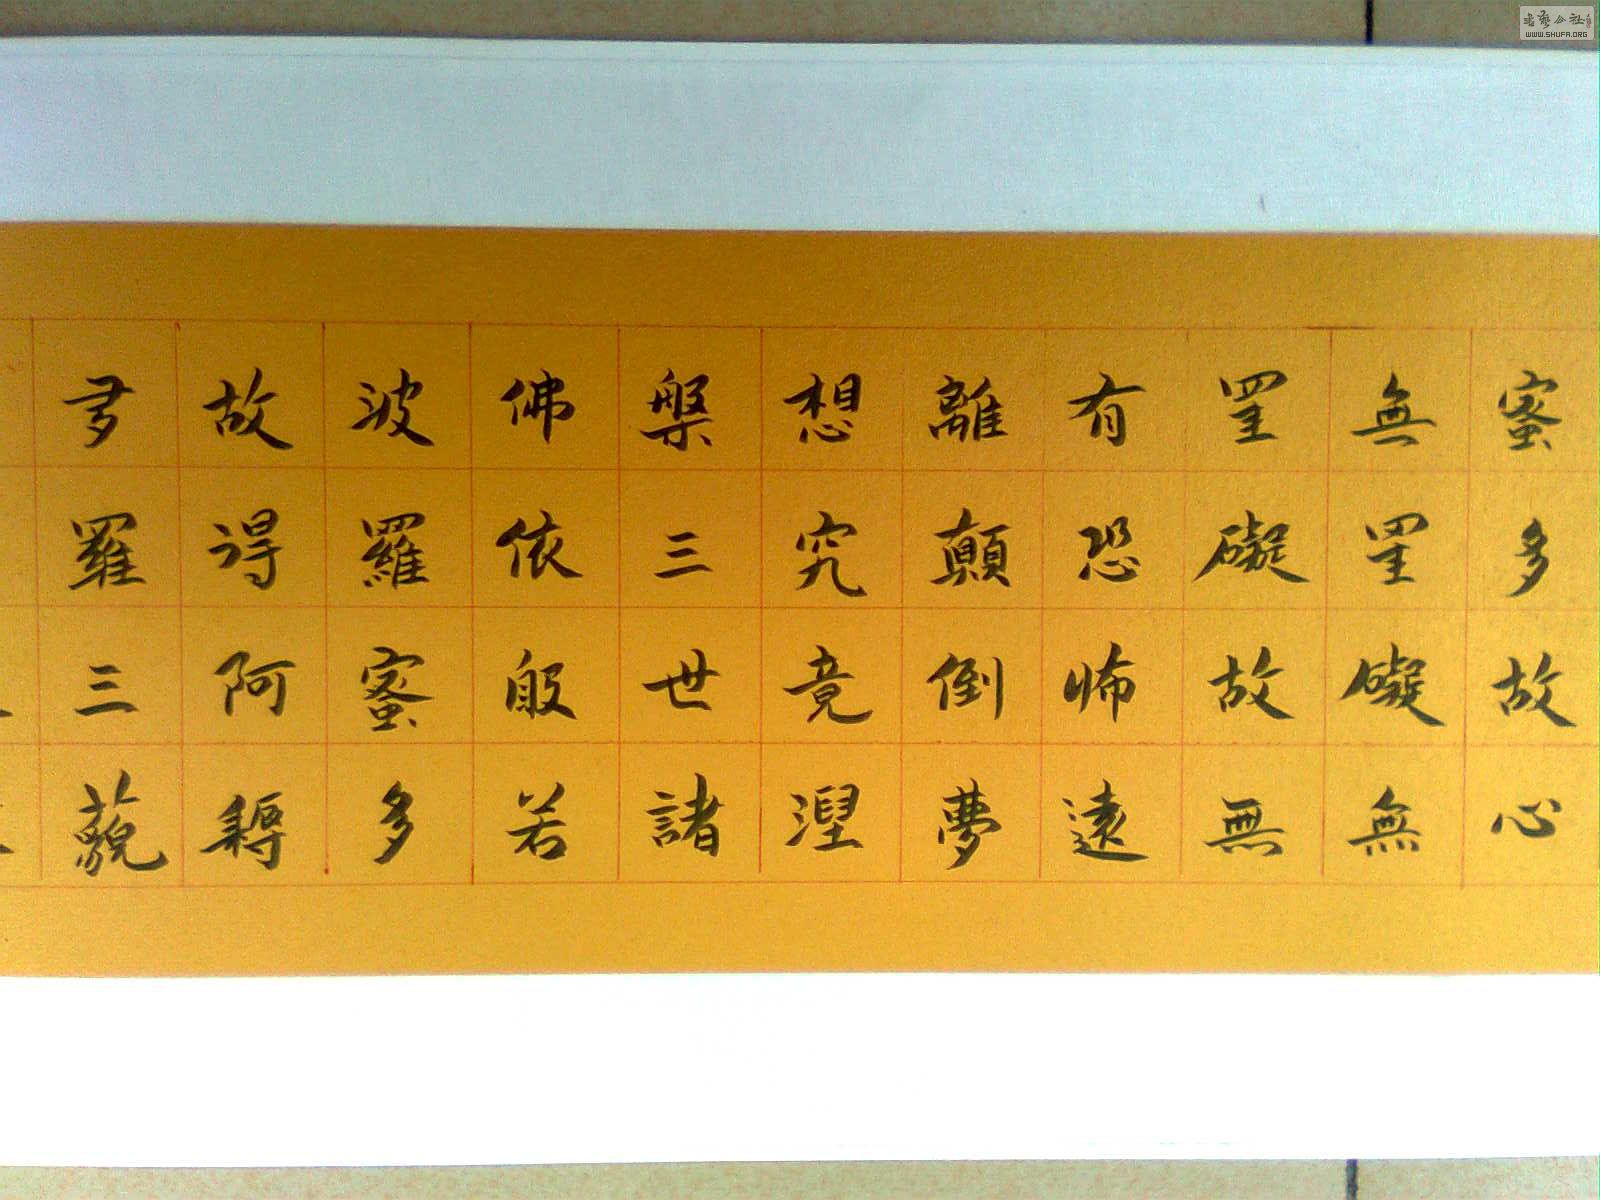 蜜多故心
無罣礙無
罣礙故無
有恐怖遠
離顛倒夢
想究竟涅
槃三世諸
佛依般若
波羅蜜多
故得阿耨
多羅三藐
書藝公社
WWW.SHUFA.ORG